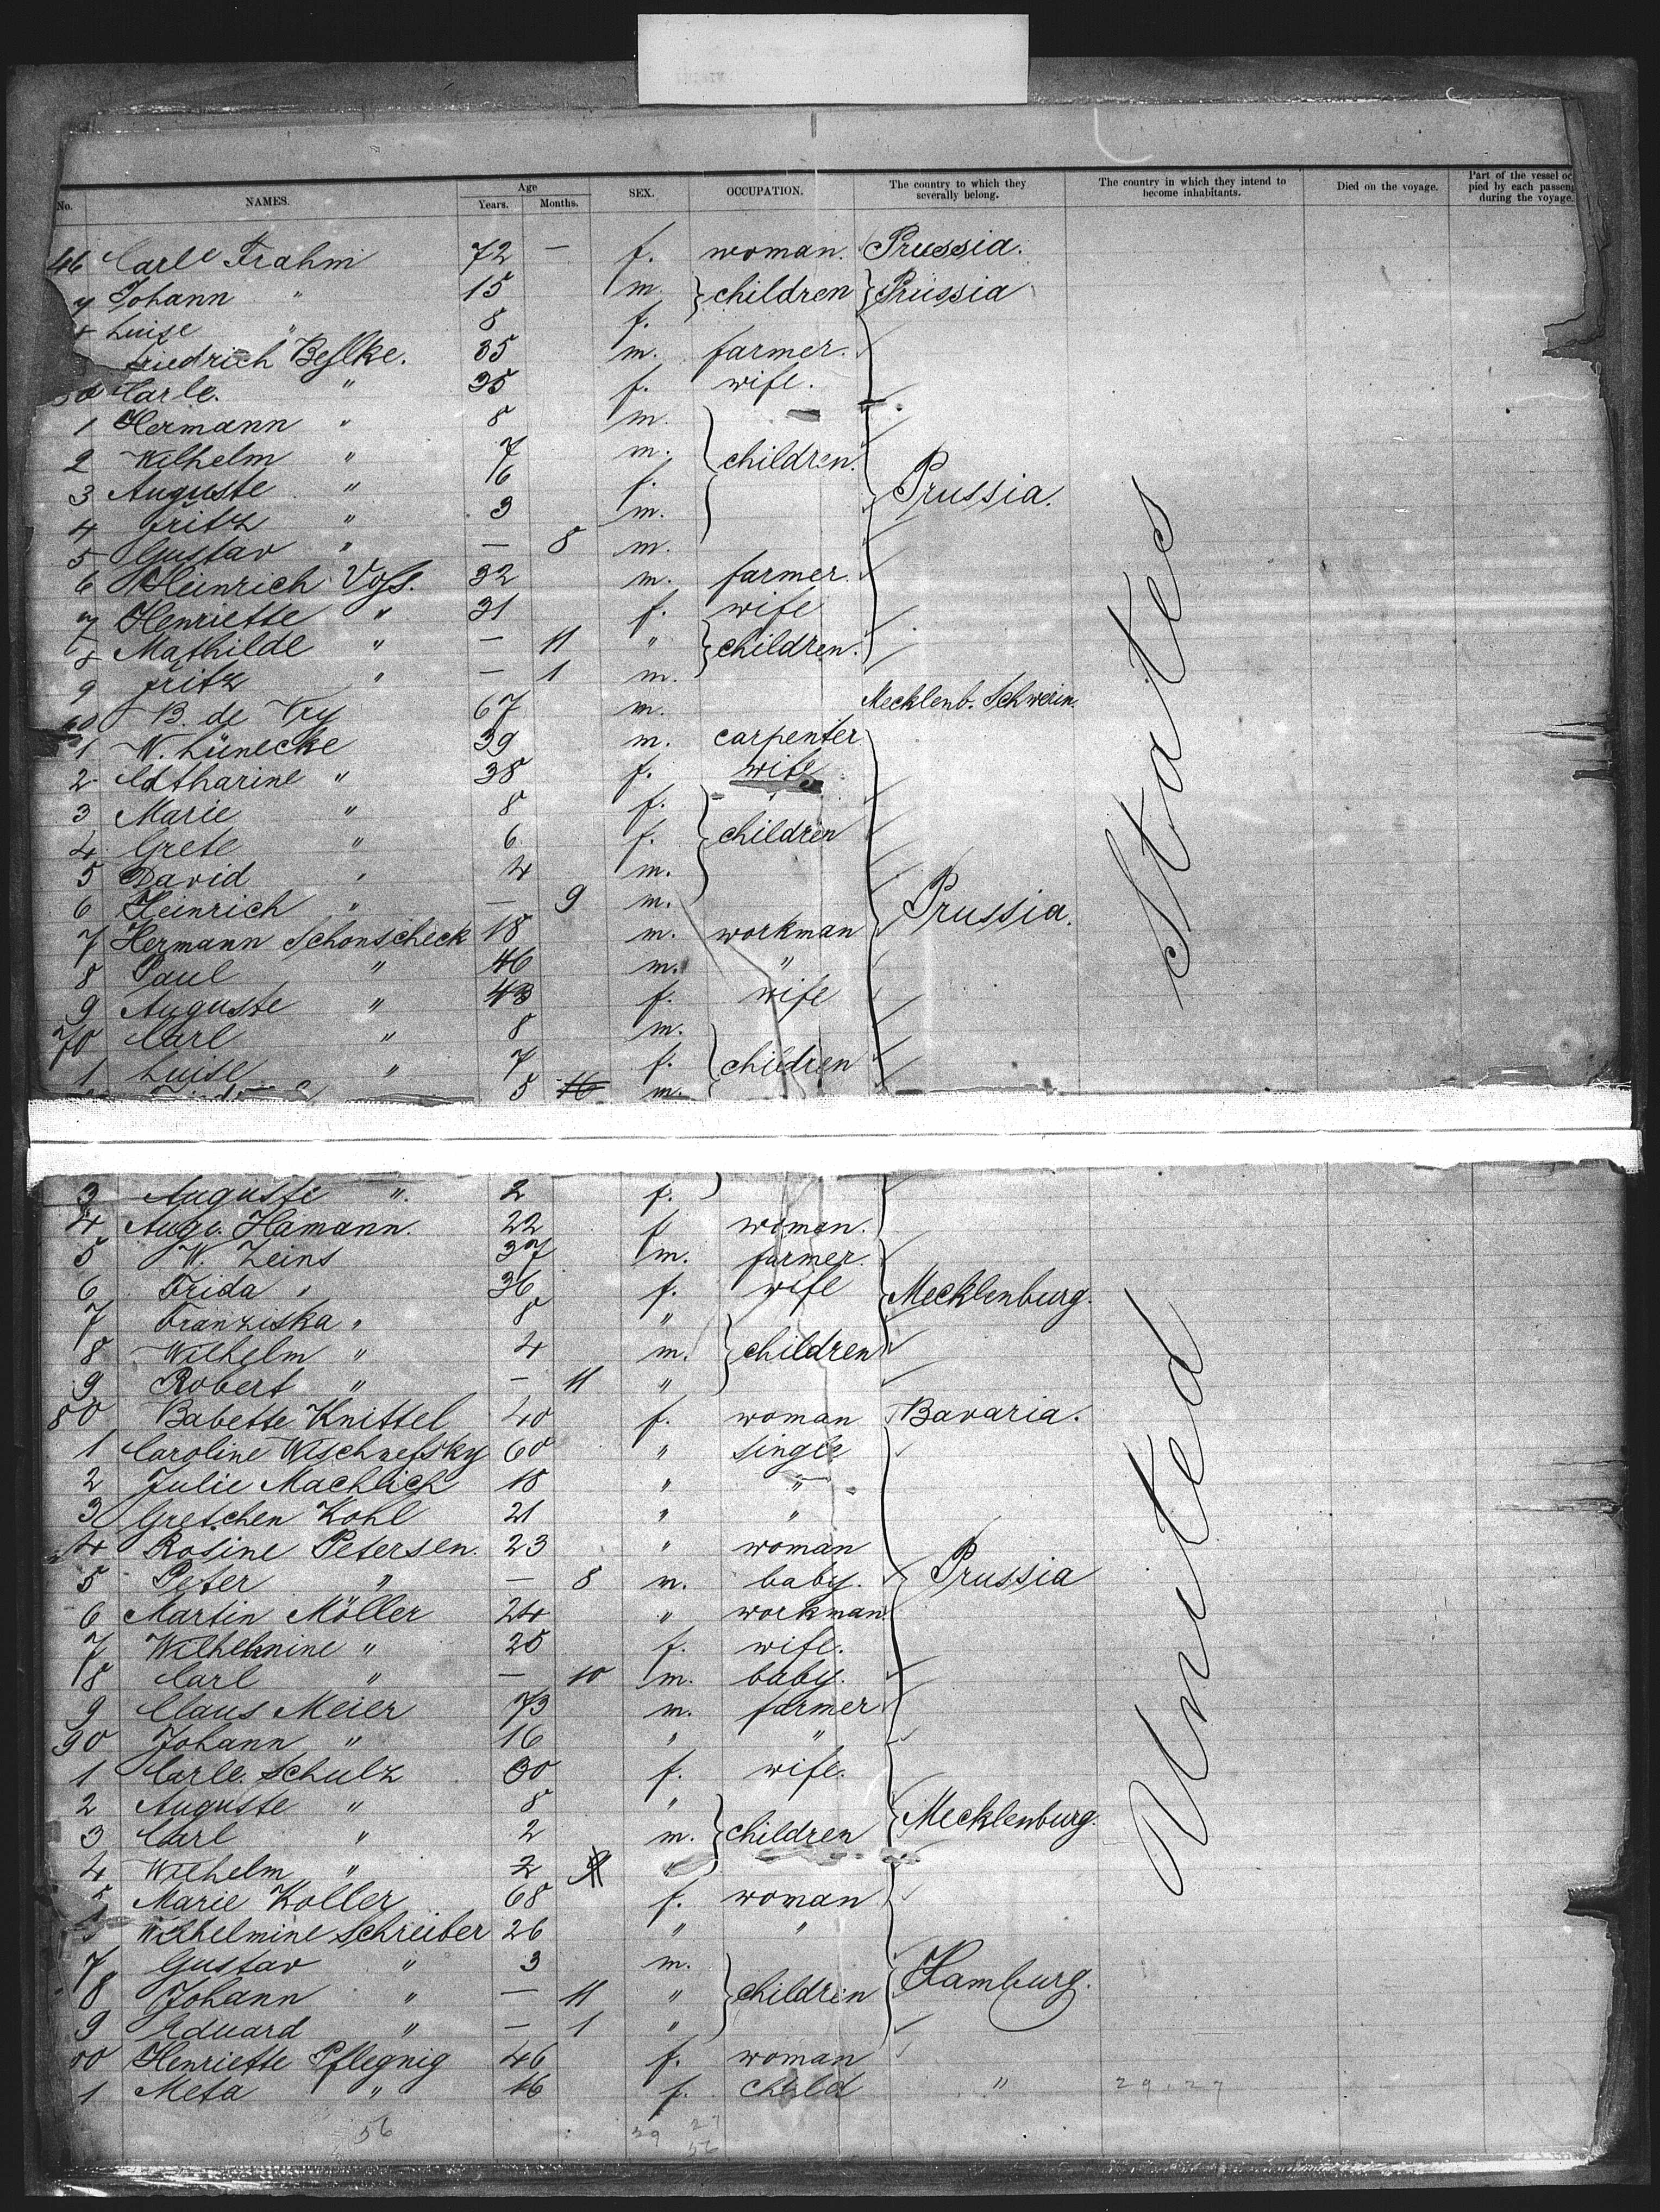 No. NAMES. Age Years. Months. SEX. OCCUPATION. The country to which they severally belong. The country in which they intend to become inhabitants. Died on the voyage. Part of the vessel oc pied by each passeng during the voyage.
46 Carle Frahm 72 — f. woman. Prussia.
7 Johann " 15 m. children Prussia
8 Luise " 8 f.
Friedrich Beslke. 35 m. farmer.
50 Carle. " 35 f. wife.
1 Hermann " 8 m.
2 Wilhelm " 7 m. children.
3 Auguste " 6 f. Prussia.
4 Fritz " 3 m.
5 Gustav " — 8 m.
6 Heinrich Voss. 32 m. farmer.
7 Henriette " 31 f. wife
8 Mathilde " — 11 " children.
9 Fritz " — 1 m.
60 B. de Vry 67 m. Mecklenb. Schwerin.
1 W. Lünecke 39 m. carpenter
2 Catharine " 38 f. wife
3 Marie " 8 f.
4 Grete " 6 f. children
5 David " 4 m.
6 Heinrich " — 9 m. Prussia.
7 Hermann Schonscheck 18 m. workman
8 Paul " 46 m. "
9 Auguste " 43 f. wife
70 Carl " 8 m.
1 Luise " 7 f. children
5 m.
States
3 Auguste " 2 f.
4 Augu. Hamann. 22 f woman.
5 W. Zeins 37 m. farmer.
6 Frida " 36 f. wife Mecklenburg.
7 Franziska " 8 "
8 Wilhelm " 4 m. children
9 Robert " — 11 "
80 Babette Knittel 40 f. woman Bavaria.
1 Caroline Wischnefsky 60 " single
2 Julie Machlich 18 " "
3 Gretchen Kohl 21 " "
4 Rosine Petersen. 23 " woman
5 Peter " — 8 m. baby. Prussia
6 Martin Möller 24 " workman
7 Wilhelmine " 25 f. wife.
8 Carl " — 10 m. baby.
9 Claus Meier 73 m. farmer
90 Johann " 16 " "
1 Carle. Schulz 30 f. wife.
2 Auguste " 8 "
3 Carl " 2 m. children Mecklenburg.
4 Wilhelm " 2 "
5 Marie Koller 68 f. woman
Wilhelmine Schreiber 26 " "
7 Gustav " 3 m.
8 Johann " — 11 " children Hamburg.
9 Eduard " — 1 "
00 Henriette Pflegnig 46 f. woman
1 Meta " 16 f. child " 29.27
56 29 27
56
United